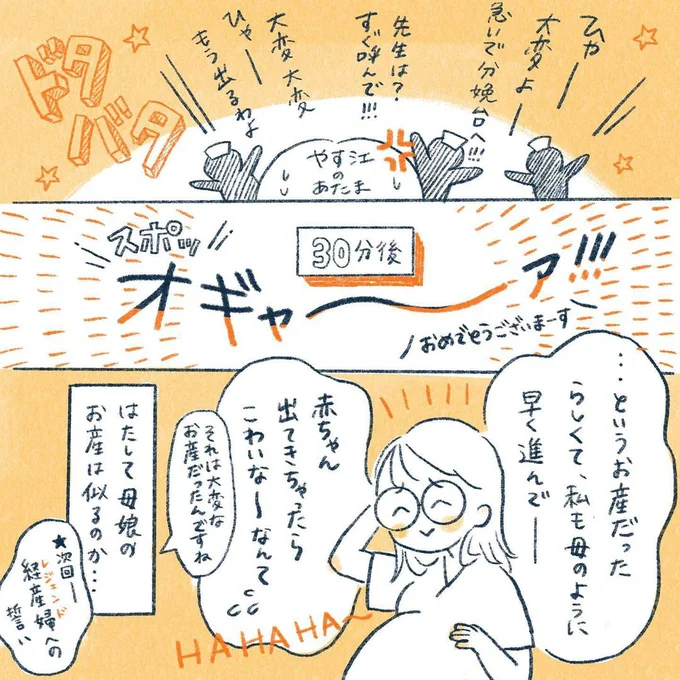 ひゃー
大変よー
急いで分娩台へ!!!
先生は?
すぐ呼んで!!!
大変大変
ひゃー
もう出るわよ
ドタ
バタ
やす江
の
あたま
30分後
スポッ
オギャーーア!!!
おめでとうございまーす
…というお産だった
らしくて、私も母のように
早く進んで――
赤ちゃん
出てきちゃったら
こわいな〜なんて
それは大変な
お産だったんですね
HAHAHA〜
はたして母娘の
お産は似るのか…
★次回――
レジェンド
経産婦への
誓い